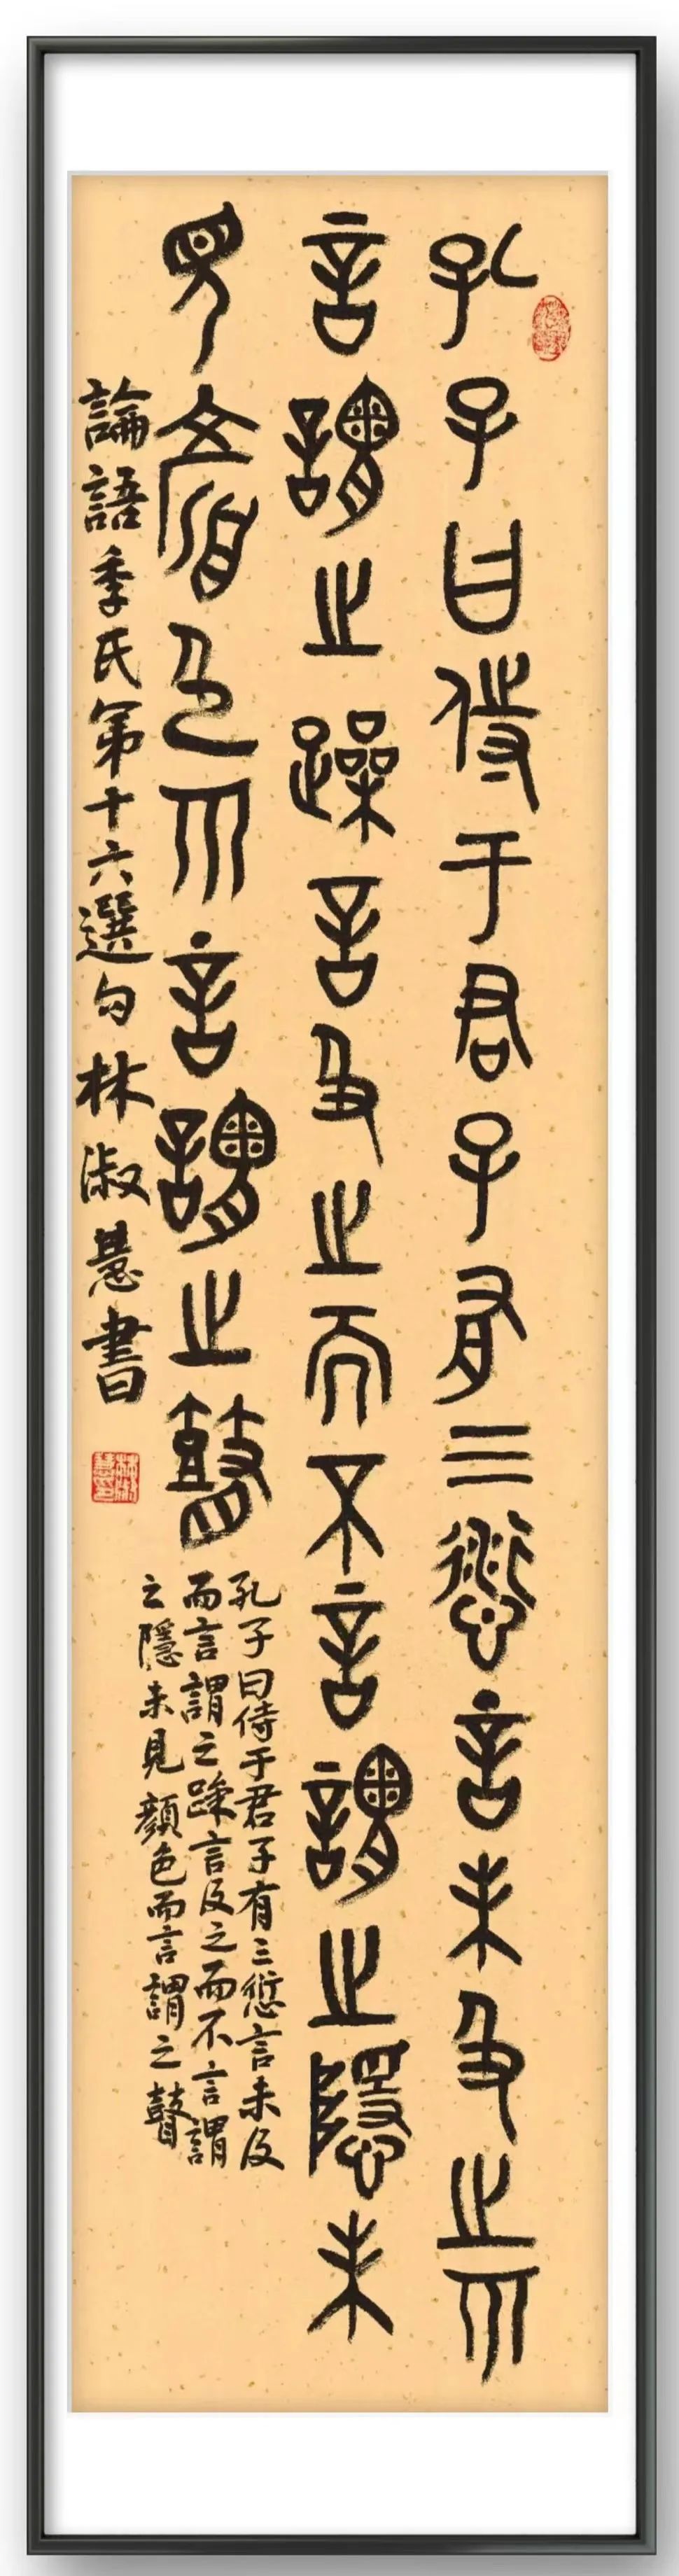 孔子曰侍于君子有三愆言未及之而
言謂之躁言及之而不言謂之隱未
見顏色而言謂之瞽
孔子曰侍于君子有三愆言未及
而言謂之躁言及之而不言謂
之隱未見顏色而言謂之瞽
論語季氏第十六選句林淑慧書